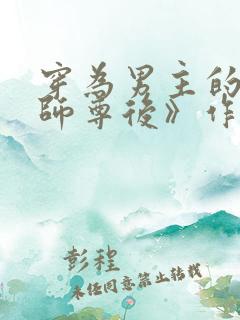 穿為男主的
師尊後》作
彭程
未經同意禁止轉載